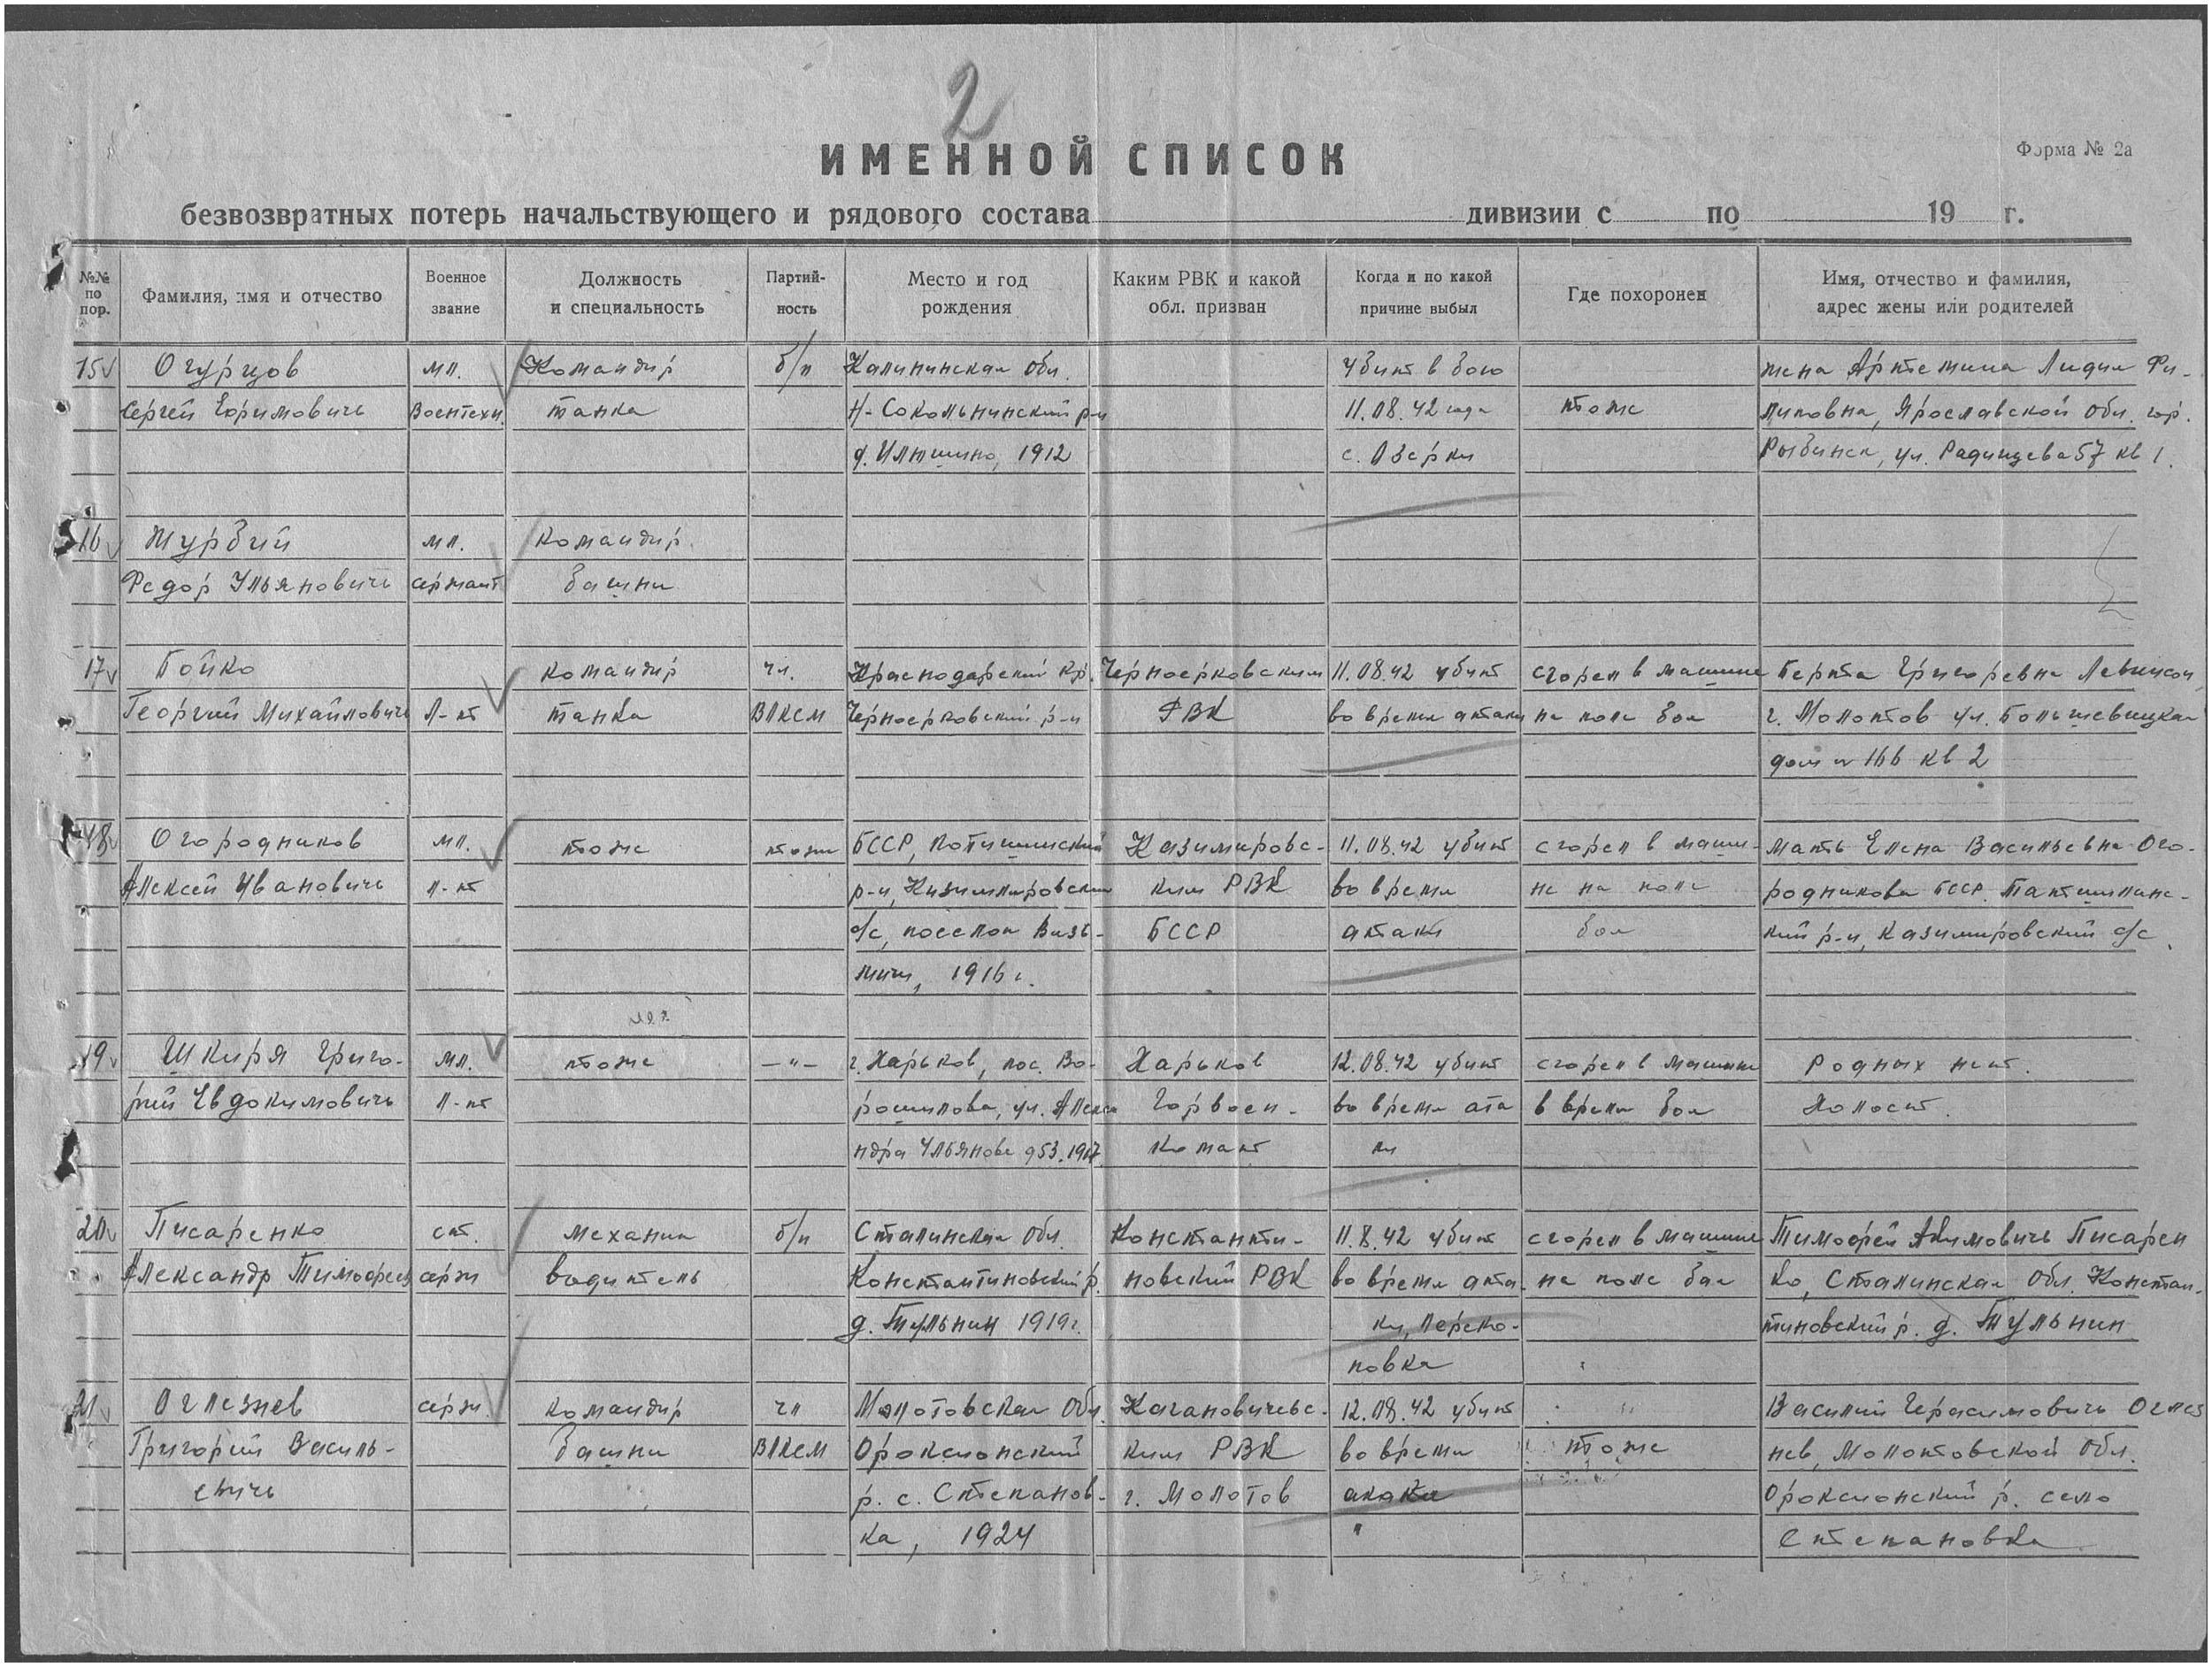 2
ИМЕННОЙ СПИСОК
Форма № 2а
безвозвратных потерь начальствующего и рядового состава дивизии с по 19 г.
№№ по пор.
Фамилия, имя и отчество
Военное звание
Должность и специальность
Партий-ность
Место и год рождения
Каким РВК и какой обл. призван
Когда и по какой причине выбыл
Где похоронен
Имя, отчество и фамилия, адрес жены или родителей
15 Огурцов мл. Командир б/п Калининская обл. Убит в бою жена Артемина Лидия Фи-
Сергей Ефимович Воентехн. танка Н-Сокольнинский р-н 11.08.42 года тоже липовна, Ярославской обл. гор.
д. Илюшино, 1912 с. Озерки Рыбинск, ул. Радищева 57 кв 1.
16 Журбий мл. Командир
Федор Ульянович сержант башни
17 Бойко командир чл. Краснодарский кр. Черноерковским 11.08.42 убит сгорел в машине Берта Григоревна Левинсон,
Георгий Михайлович Л-нт танка ВЛКСМ Черноерковский р-н РВК во время атаки на поле боя г. Молотов ул. Большевицкая
дом № 166 кв 2
18 Огородников мл. тоже тоже БССР, р-н Казимировс- 11.08.42 убит сгорел в маши- мать Елена Васильевна Ого-
Алексей Иванович л-нт р-н, Казимировский ким РВК во время не на поле родникова БССР.
с/с, поселок БССР атаки боя кий р-н, Казимировский с/с
1916 г.
19 Шкиря Григо- мл. тоже —"— г. Харьков, пос. Во- Харьков 12.08.42 убит сгорел в машине Родных нет.
рий Евдокимович л-нт рошилова, ул. Алекса Горвоен- во время ата в время боя Холост.
ндра Ульянова д 53. 1917 комат ки
20 Писаренко ст. механик б/п Сталинская обл. Константи- 11.8.42 убит сгорел в машине Тимофей Акимович Писарен
Александр Тимофеев серж водитель Константиновский р. новский РВК во время ата- на поле боя ко, Сталинская обл. Констан-
д. Тульнин 1919 г. ки, Перекоповка тиновский р. д. Тульнин
21 Оглезнев серж. командир чл Молотовская обл. Кагановичевс- 12.08.42 убит " Василий Герасимович Оглез
Григорий Василь- башни ВЛКСМ Ороксионский ким РВК во время тоже нев, Молотовской обл.
евич р. с. Степанов- г. Молотов Ороксионский р. село
ка, 1924 " Степановка